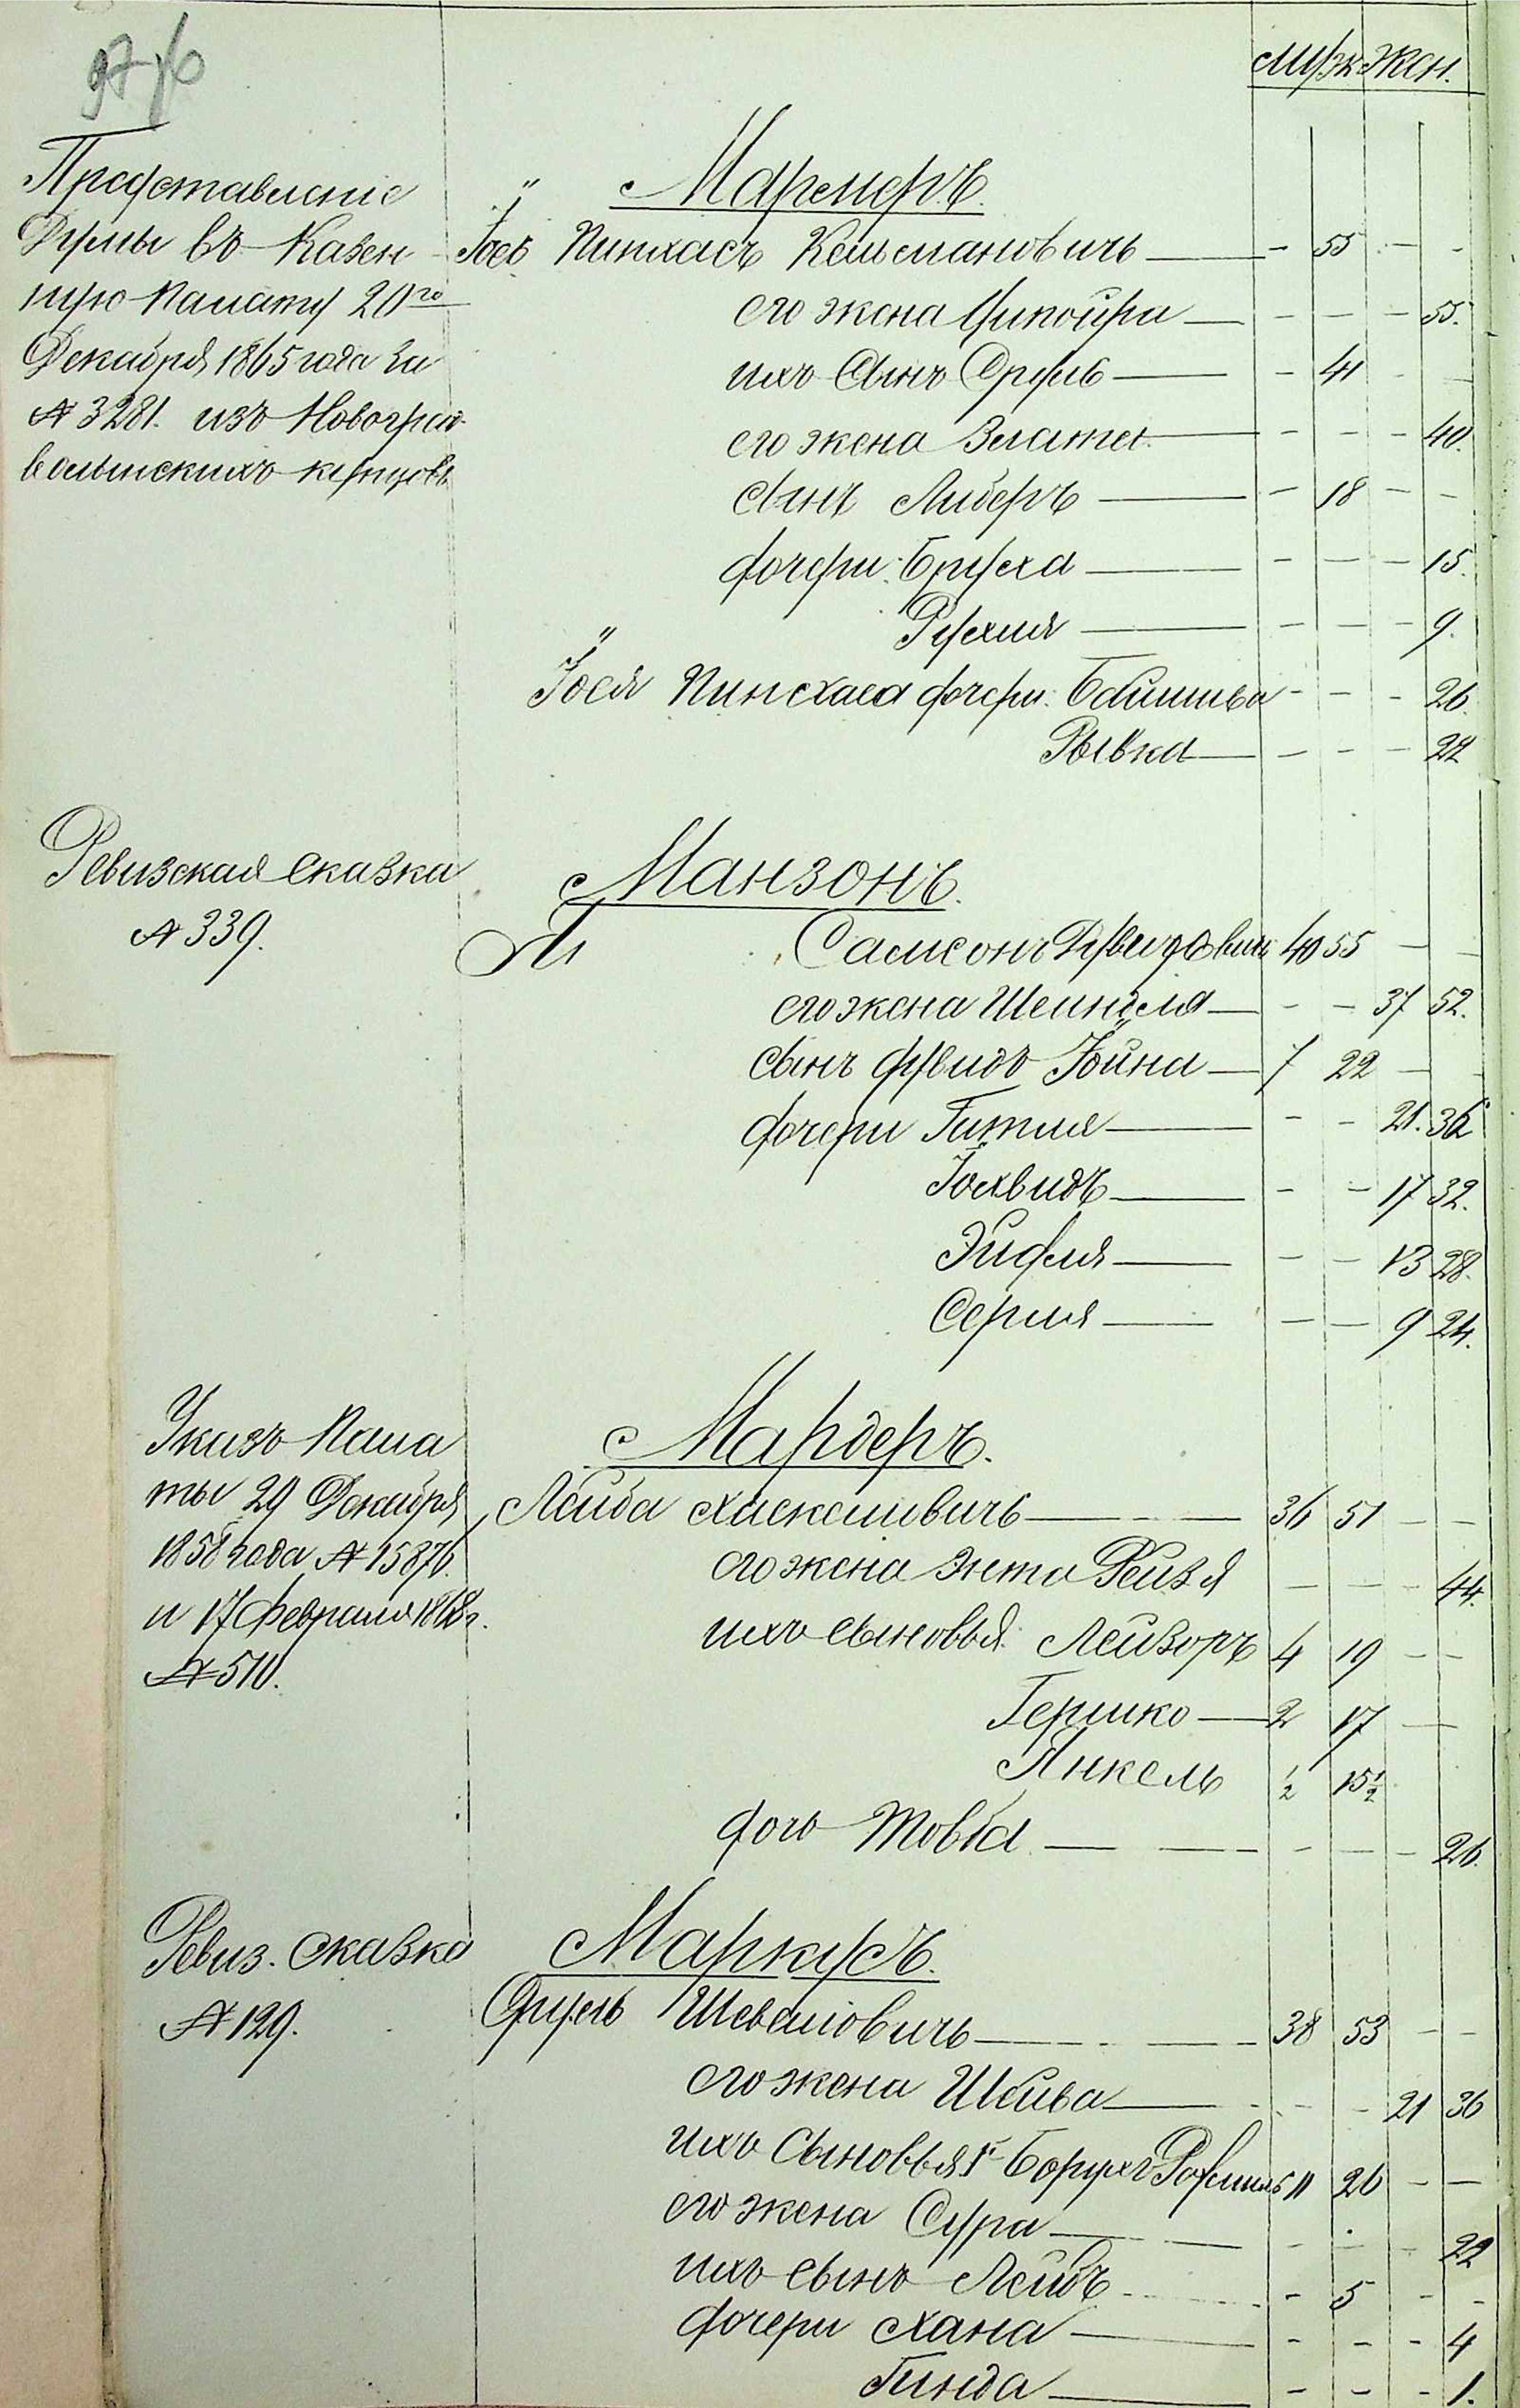 муж. жен.
Представленіе
Думы въ Казен
ную Палату 20го
Декабря 1865 года за
№ 3281. изъ Новоград
волынскихъ купцовъ
Пинхасъ Кельмановичъ — - 55 - -
его жена Ципойра — - - - 55.
ихъ сынъ Сруль — - 41 - -
его жена Златта — - - - 40.
сынъ Либеръ — - 18 - -
дочери: Бруха — - - - 15.
Рухля — - - - 9.
Іося Пинхаса дочери: Бейшива - - - 26.
Рывка — - - - 22
Ревизская сказка
№ 339.
Манзонъ.
Самсонъ Дувидовичъ 40 55 - -
его жена Шейндля — - - 37 52.
сынъ Дувидъ Іойна — 7 22 - -
дочери Гитля — - - 21. 36
Іохвидъ — - - 17 32.
Эйдля — - - 13 28.
Серля — - - 9 24.
Указъ Пала
ты 29 Декабря
1858 года № 15876.
и 17 Февраля 1868 г.
№ 510.
Мардеръ.
Лейба Хаскелевичъ — 36 51 - -
его жена Энта Рейзя - - - 44.
ихъ сыновья: Лейзоръ 4 19 - -
Гершко — 2 17 -
Янкель ½ 15½
дочь Товба — - - - 26.
Ревиз. сказка
№ 129.
Маркусъ.
Сруль Шевелiовичъ — 38 53 - -
его жена Шейва — - - 21 36
ихъ сыновья 1й Борухъ 11 26 - -
его жена Сура — - - - 22
ихъ сынъ Лейбъ - 5 - -
дочери Хана — - - - 4
Гинда — - - - 1.